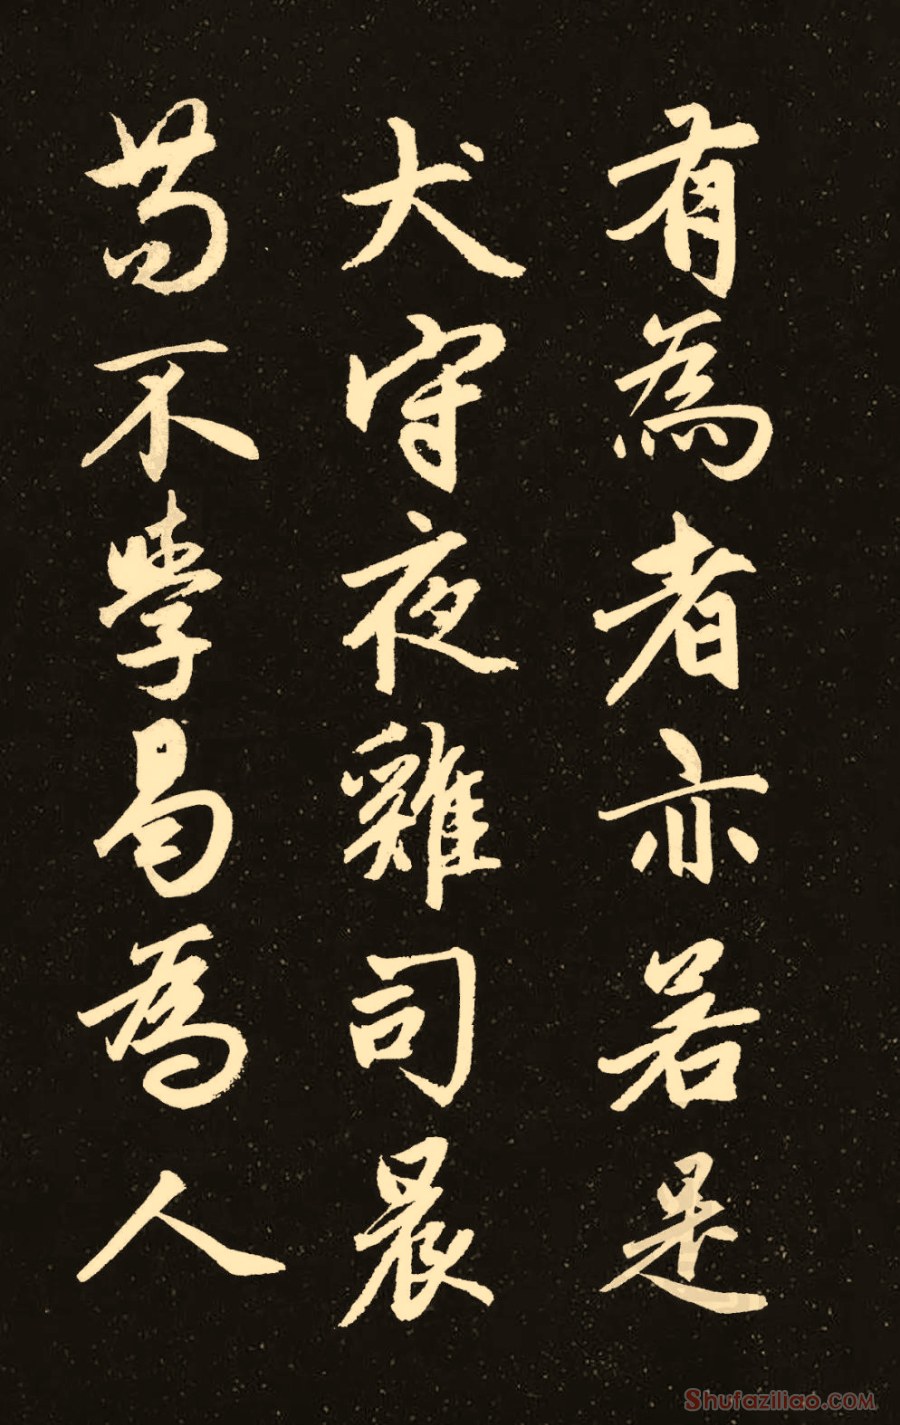 有為者亦若是
犬守夜雞司晨
苟不學曷為人
Shufaziliao.COM